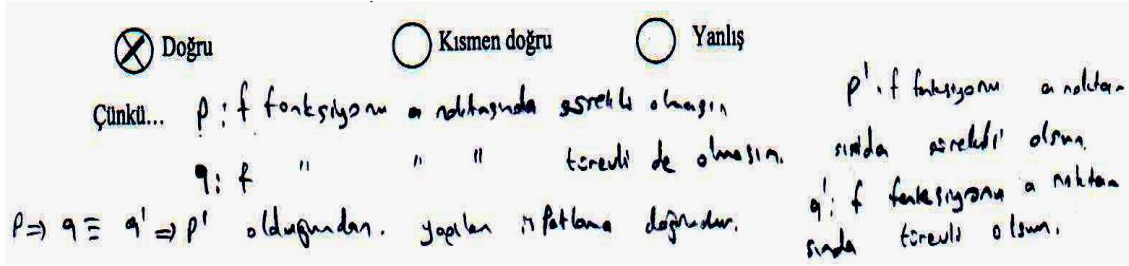 Doğru Kısmen doğru Yanlış
Çünkü... p : f fonksiyonu a noktasında sürekli olmasın
q : f " " " türevli de olmasın.
p ⇒ q ≡ q' ⇒ p' olduğundan. yapılan ispatlama doğrudur.
p' : f fonksiyonu a noktasında
sürekli olsun.
q' : f fonksiyonu a noktasında
türevli olsun.